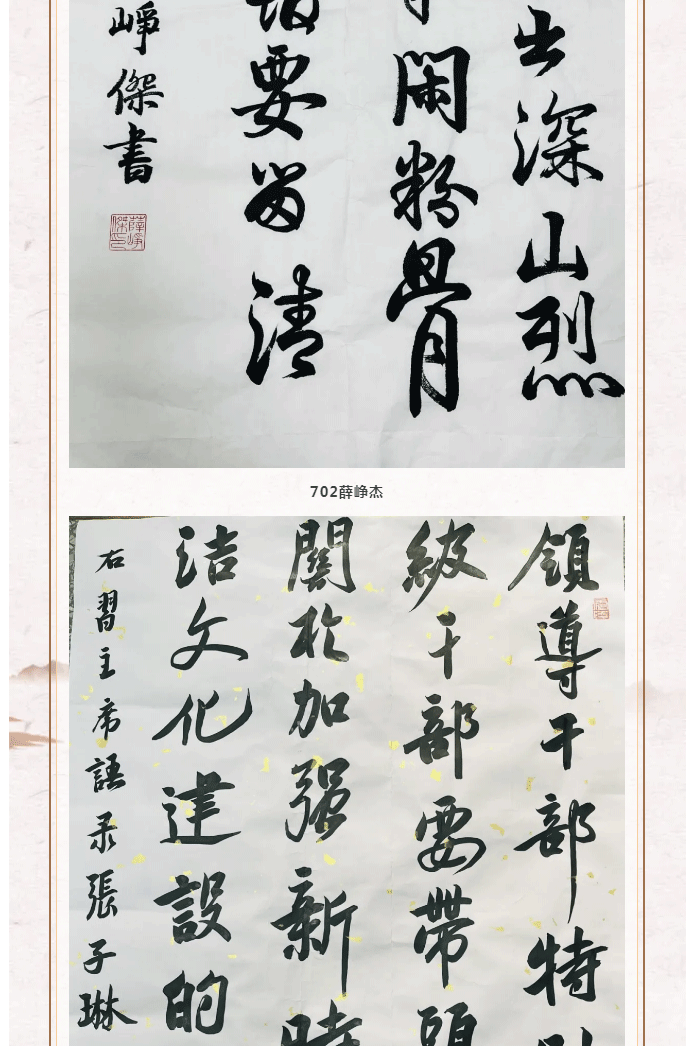 出深山烈
閑粉骨
要留清
峥傑書
薛峥傑印
702薛峥杰
領導干部特
級干部要帶頭
關於加强新時
洁文化建設的
右習主席語录張子琳